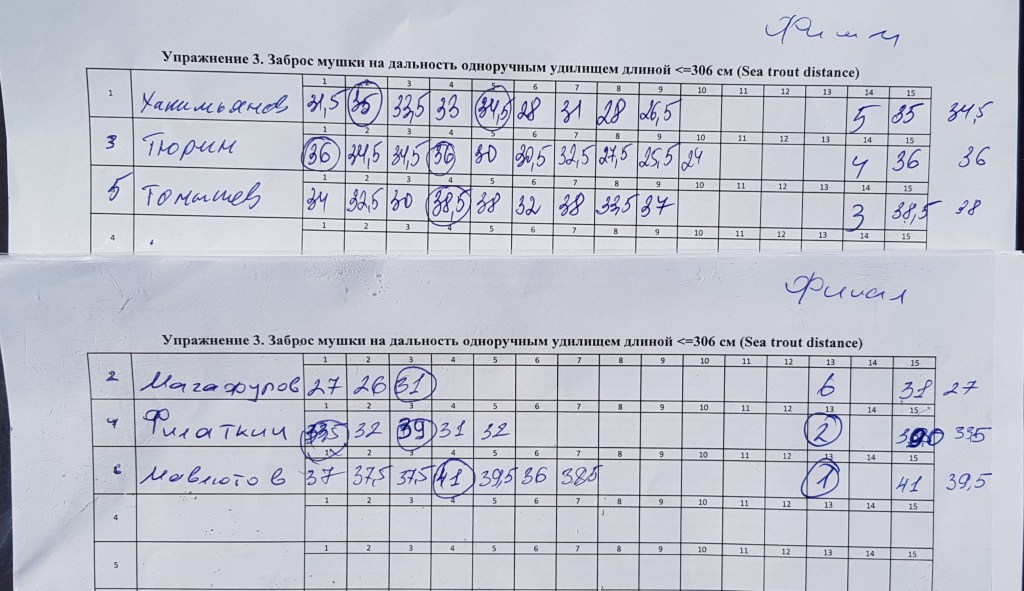 Финал
Упражнение 3. Заброс мушки на дальность одноручным удилищем длиной <=306 см (Sea trout distance)
1 2 3 4 5 6 7 8 9 10 11 12 13 14 15
1 Хакимьянов 31,5 35 33,5 33 34,5 28 31 28 26,5 5 35 34,5
1 2 3 4 5 6 7 8 9 10 11 12 13 14 15
3 Тюрин 36 34,5 34,5 36 30 30,5 32,5 27,5 25,5 24 4 36 36
1 2 3 4 5 6 7 8 9 10 11 12 13 14 15
5 34 32,5 30 38,5 38 32 38 33,5 37 3 38,5 38
1 2 3 4 5 6 7 8 9 10 11 12 13 14 15
4
Финал
Упражнение 3. Заброс мушки на дальность одноручным удилищем длиной <=306 см (Sea trout distance)
1 2 3 4 5 6 7 8 9 10 11 12 13 14 15
2 Магафуров 27 26 31 6 31 27
1 2 3 4 5 6 7 8 9 10 11 12 13 14 15
4 Филаткин 33,5 32 39 31 32 2 33,5
1 2 3 4 5 6 7 8 9 10 11 12 13 14 15
6 Мавлютов 37 37,5 37,5 41 39,5 36 38,5 1 41 39,5
1 2 3 4 5 6 7 8 9 10 11 12 13 14 15
4
1 2 3 4 5 6 7 8 9 10 11 12 13 14 15
5